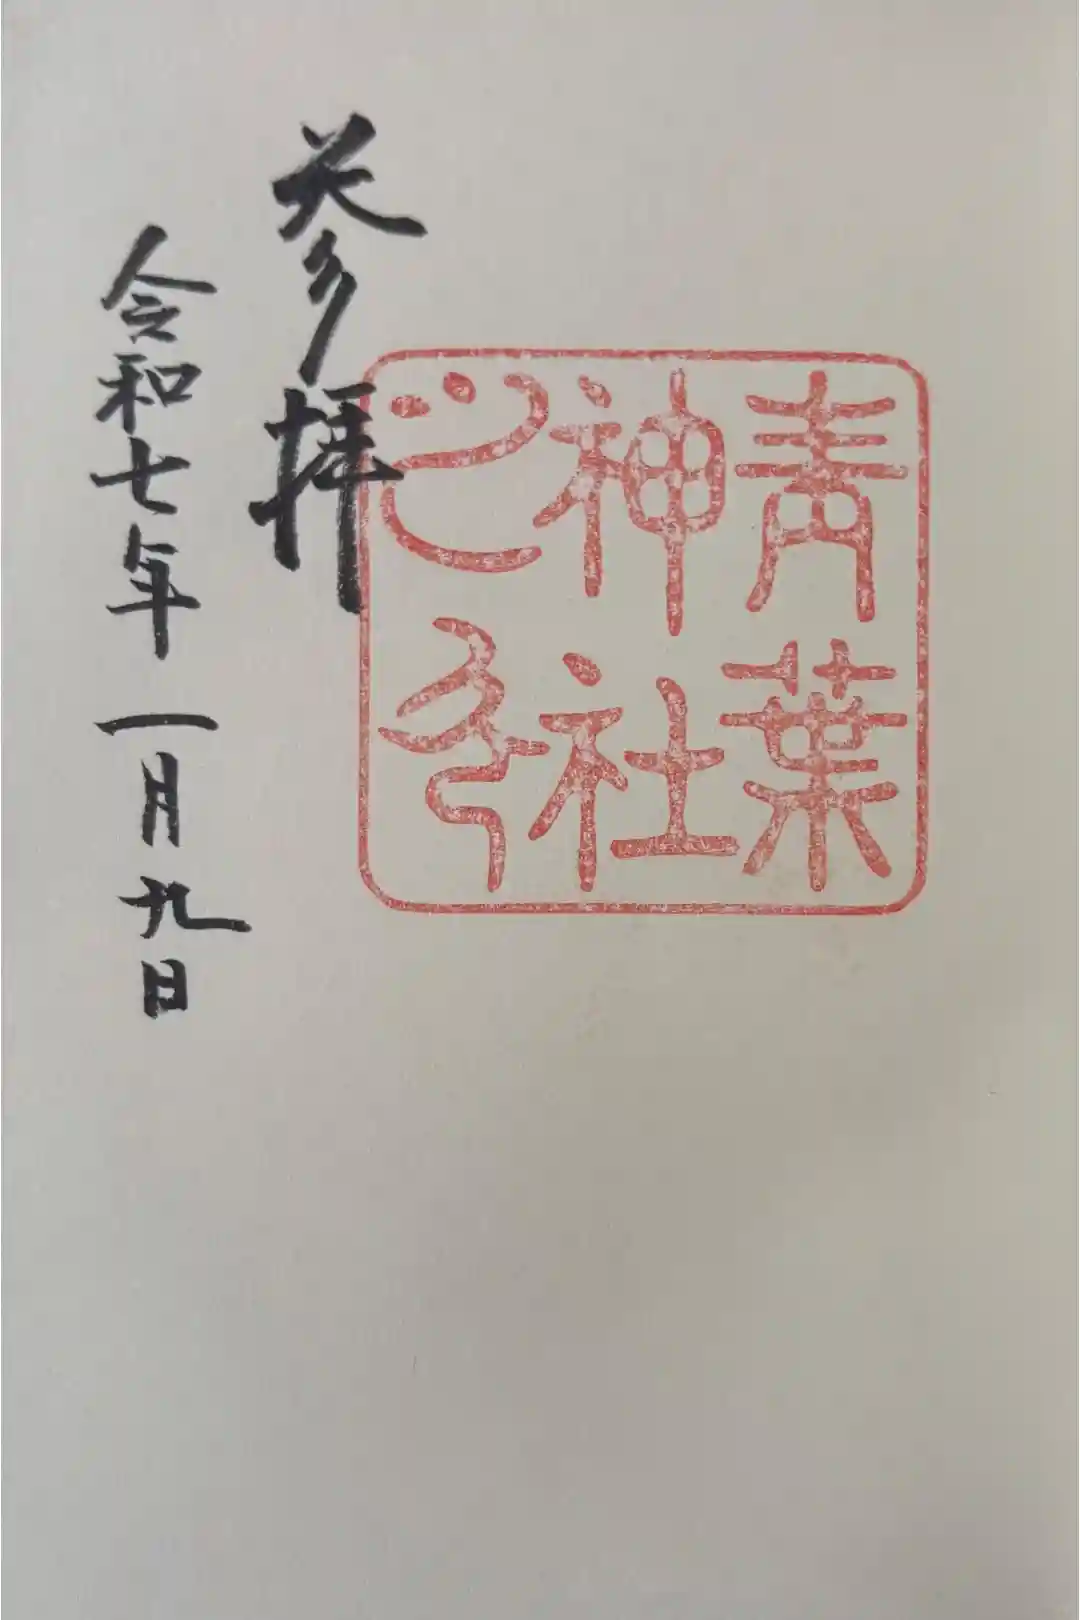 青葉
神社
之印
参拝
令和七年一月九日